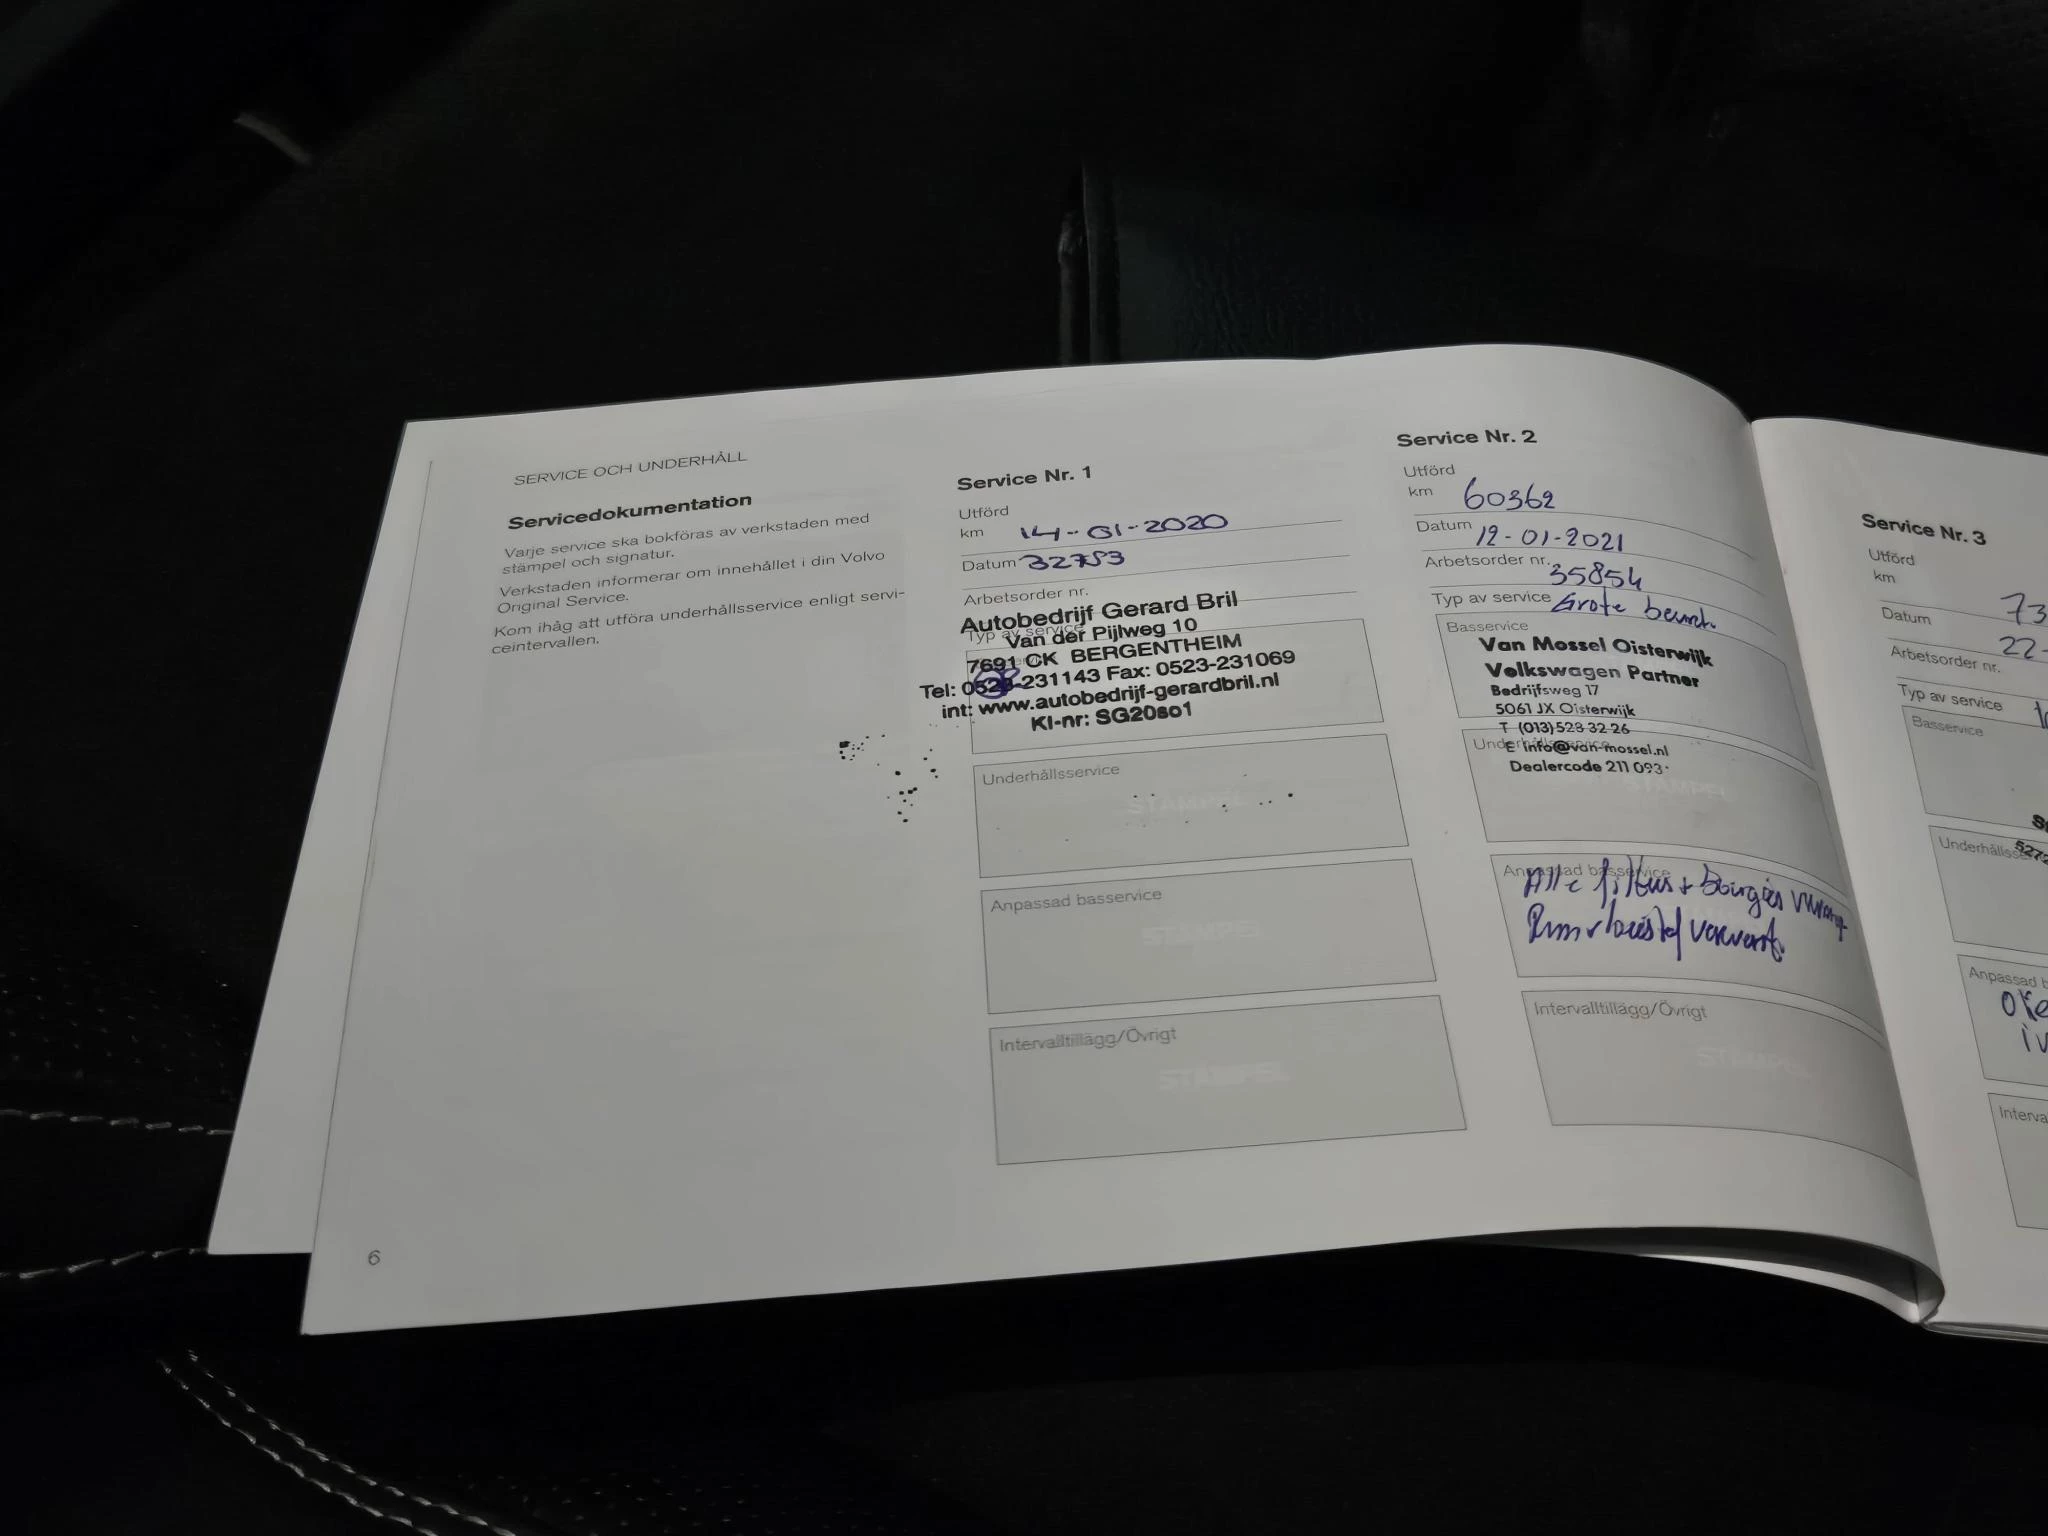 SERVICE OCH UNDERHÅLL
Servicedokumentation
Varje service ska bokföras av verkstaden med
stämpel och signatur.
Verkstaden informerar om innehållet i din Volvo
Original Service.
Kom ihåg att utföra underhållsservice enligt servi-
ceintervallen.
6
Service Nr. 1
Utförd
km 14-01-2020
Datum 32753
Arbetsorder nr.
Typ av service
Autobedrijf Gerard Bril
Van der Pijlweg 10
7691 CK BERGENTHEIM
Tel: 0523-231143 Fax: 0523-231069
int: www.autobedrijf-gerardbril.nl
KI-nr: SG20so1
Underhållsservice
STÄMPEL
Anpassad basservice
STÄMPEL
Intervalltillägg/Övrigt
STÄMPEL
Service Nr. 2
Utförd
km 60362
Datum 12-01-2021
Arbetsorder nr. 35854
Typ av service Grote beurt.
Basservice
Van Mossel Oisterwijk
Volkswagen Partner
Bedrijfsweg 17
5061 JX Oisterwijk
T (013) 528 32 26
Underhållsservice
E info@van-mossel.nl
Dealercode 211 093
STÄMPEL
Anpassad basservice
Alle filters + bougies
Remvloeistof ververst.
Intervalltillägg/Övrigt
STÄMPEL
Service Nr. 3
Utförd
km 73
Datum
22-
Arbetsorder nr.
Typ av service
Basservice
5272
Underhållsse
Anpassad b
Interva